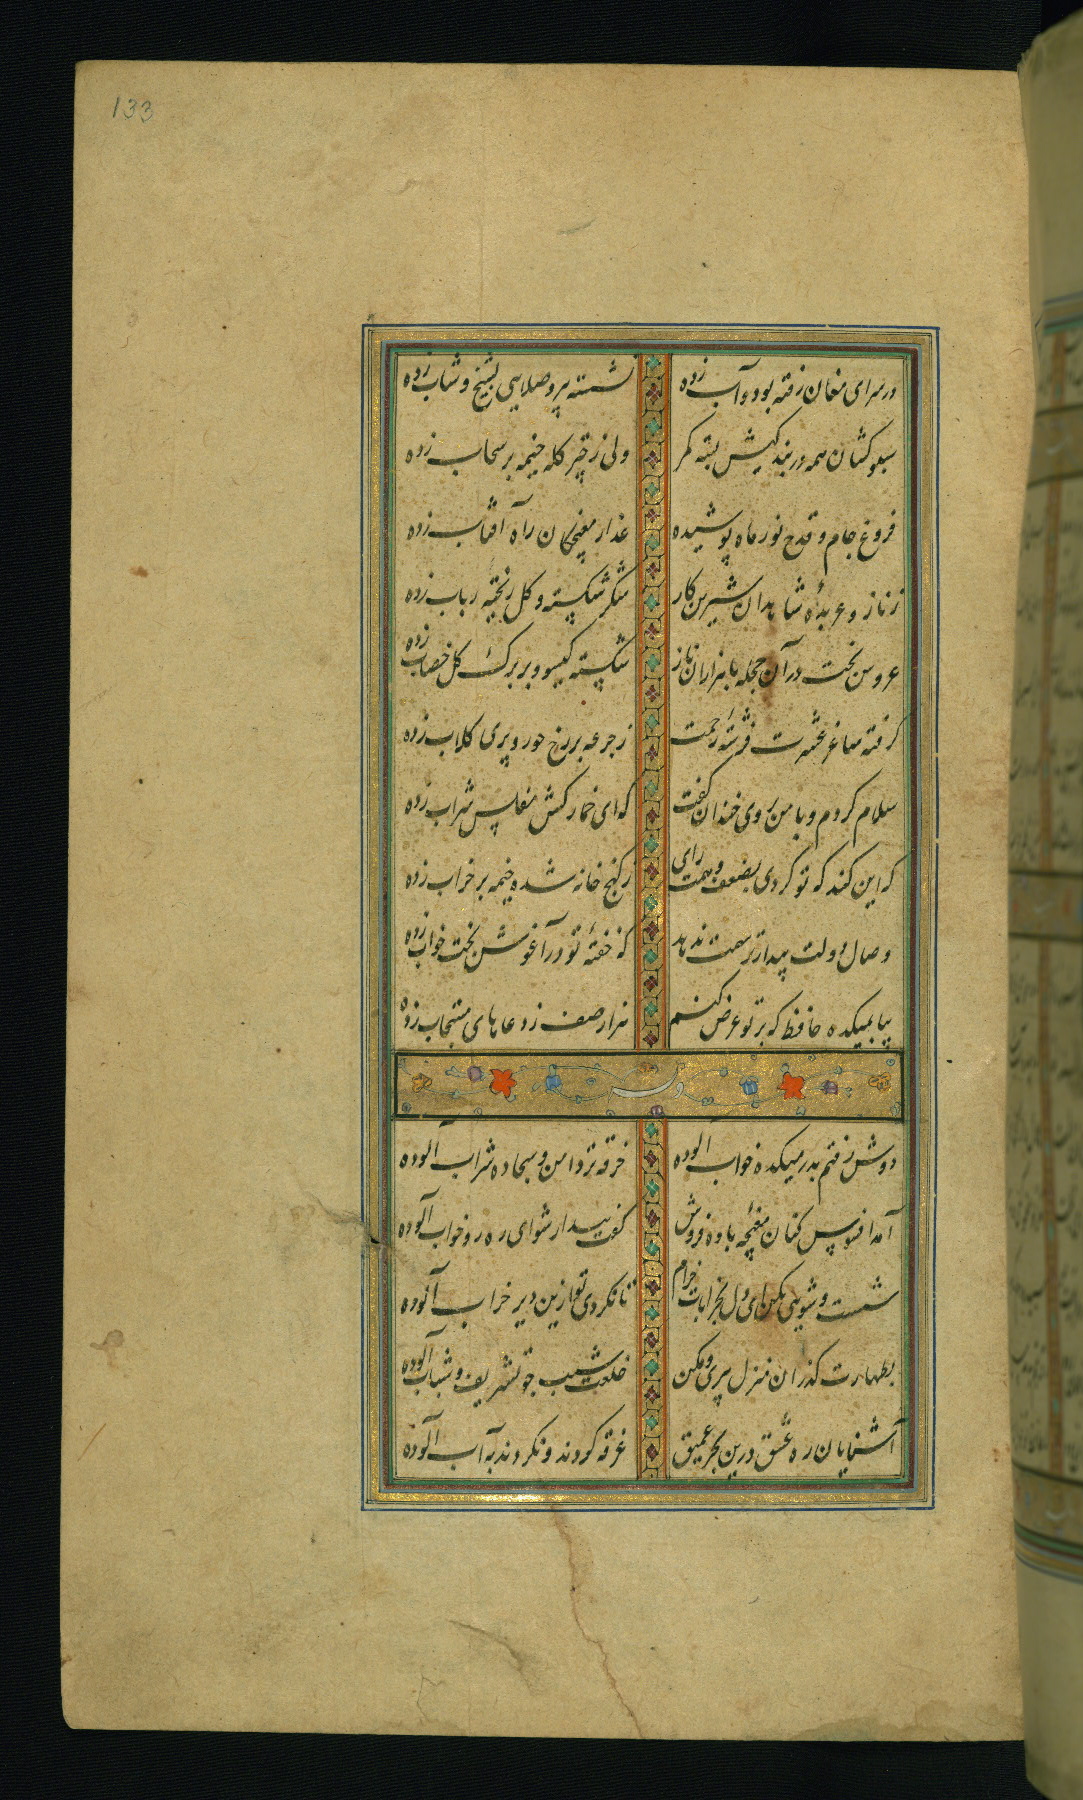 133
در سرای مغان رفته بود و آب زده
نشسته پیر و صلایی بشیخ و شاب زده
سبو کشان همه در بندگیش بسته کمر
ولی ز قبر کله خیمه بر سحاب زده
فروغ جام و قدح نور ماه پوشیده
عذار مغبچگان راه آفتاب زده
ز ناز و عربدهٔ شاهدان شیرین کار
شکر شکسته و گل ریخته رباب زده
عروس بخت در آن حجله با هزاران ناز
شکسته گیسو و بر برگ گل خضاب زده
گرفته ساغر عشرت فرشتهٔ رحمت
ز جرعه بر رخ حور و پری گلاب زده
سلام کردم و با من بروی خندان گفت
که ای خمارکش مفلس شراب زده
که این کند که تو کردی بضعف و همت رای
ز کنج خانه شده خیمه بر خراب زده
وصال دولت بیدار ترسمت ندهند
که خفتهٔ تو در آغوش بخت خواب زده
بیا بمیکده حافظ که بر تو عرض کنم
هزار صف ز دعاهای مستجاب زده
وله
دوش رفتم بدر میکده خواب آلوده
خرقه تر دامن و سجاده شراب آلوده
آمد افسوس کنان مغبچهٔ باده فروش
گفت بیدار شو ای ره رو خواب آلوده
شست و شویی بکن ای دل بخرابات خرام
تا نگردی تو ازین دیر خراب آلوده
بطهارت گذران منزل پیری و مکن
خلعت شیب چو تشریف و شباب آلوده
آشنایان ره عشق درین بحر عمیق
غرقه گردند و نگردند به آب آلوده